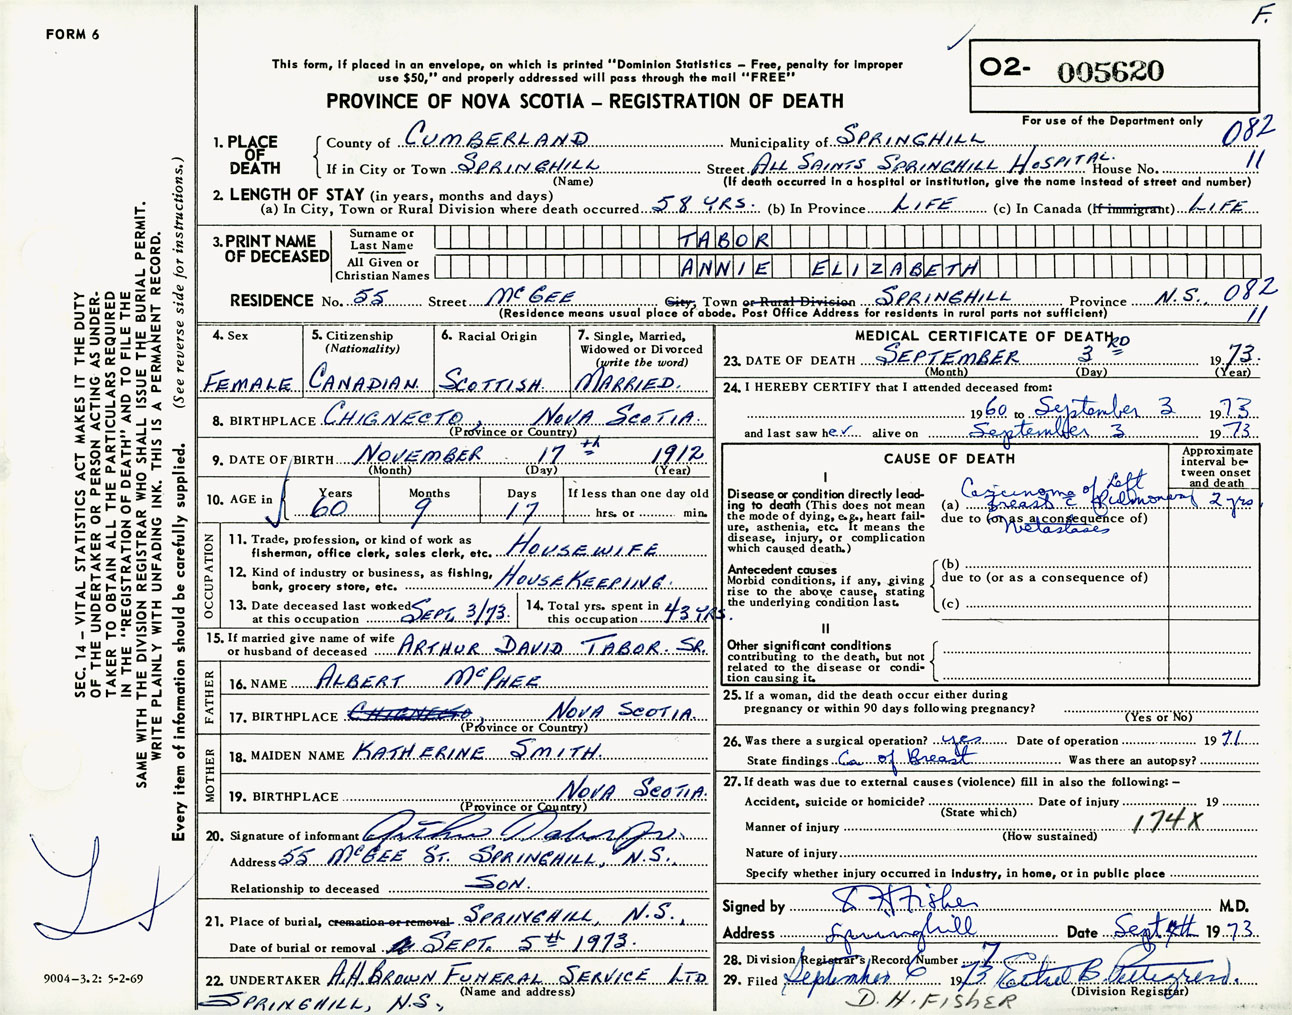 F.
FORM 6
This form, if placed in an envelope, on which is printed "Dominion Statistics – Free, penalty for improper
use $50," and properly addressed will pass through the mail "FREE"
O2- 005620
PROVINCE OF NOVA SCOTIA – REGISTRATION OF DEATH
For use of the Department only
082
11
1. PLACE OF DEATH
County of CUMBERLAND Municipality of SPRINGHILL
If in City or Town SPRINGHILL Street ALL SAINTS SPRINGHILL HOSPITAL. House No.
(Name) (If death occurred in a hospital or institution, give the name instead of street and number)
2. LENGTH OF STAY (in years, months and days)
(a) In City, Town or Rural Division where death occurred 58 YRS. (b) In Province LIFE (c) In Canada (If immigrant) LIFE
3. PRINT NAME OF DECEASED
Surname or Last Name TABOR
All Given or Christian Names ANNIE ELIZABETH
RESIDENCE No. 55 Street McGEE City, Town or Rural Division SPRINGHILL Province N.S. 082
(Residence means usual place of abode. Post Office Address for residents in rural parts not sufficient) 11
4. Sex
FEMALE
5. Citizenship
(Nationality)
CANADIAN
6. Racial Origin
SCOTTISH
7. Single, Married,
Widowed or Divorced
(write the word)
MARRIED.
8. BIRTHPLACE CHIGNECTO, NOVA SCOTIA.
(Province or Country)
9. DATE OF BIRTH NOVEMBER 17th 1912
(Month) (Day) (Year)
10. AGE in
Years Months Days If less than one day old
60 9 17 hrs. or min.
OCCUPATION
11. Trade, profession, or kind of work as
fisherman, office clerk, sales clerk, etc. HOUSEWIFE
12. Kind of industry or business, as fishing,
bank, grocery store, etc. HOUSEKEEPING.
13. Date deceased last worked
at this occupation SEPT. 3/73.
14. Total yrs. spent in
this occupation 43 YRS.
15. If married give name of wife
or husband of deceased ARTHUR DAVID TABOR. SR.
FATHER
16. NAME ALBERT McPHEE
17. BIRTHPLACE CHIGNECTO, NOVA SCOTIA.
(Province or Country)
MOTHER
18. MAIDEN NAME KATHERINE SMITH.
19. BIRTHPLACE NOVA SCOTIA.
(Province or Country)
20. Signature of informant Arthur Tabor Jr.
Address 55 McGEE ST. SPRINGHILL, N.S.
Relationship to deceased SON.
21. Place of burial, cremation or removal SPRINGHILL, N.S.,
Date of burial or removal SEPT. 5th 1973.
22. UNDERTAKER A.H. BROWN FUNERAL SERVICE LTD
(Name and address)
SPRINGHILL, N.S.,
MEDICAL CERTIFICATE OF DEATH
23. DATE OF DEATH SEPTEMBER 3RD 1973.
(Month) (Day) (Year)
24. I HEREBY CERTIFY that I attended deceased from:
1960 to September 3 1973
and last saw her alive on September 3 1973
CAUSE OF DEATH
Approximate
interval be-
tween onset
and death
I
Disease or condition directly lead-
ing to death (This does not mean
the mode of dying, e.g., heart fail-
ure, asthenia, etc. It means the
disease, injury, or complication
which caused death.)
(a) Carcinoma of Left
Breast c Pulmonary 2 yrs.
due to (or as a consequence of)
Metastases
Antecedent causes
Morbid conditions, if any, giving
rise to the above cause, stating
the underlying condition last.
(b)
due to (or as a consequence of)
(c)
II
Other significant conditions
contributing to the death, but not
related to the disease or condi-
tion causing it.
25. If a woman, did the death occur either during
pregnancy or within 90 days following pregnancy?
(Yes or No)
26. Was there a surgical operation? yes Date of operation 1971
State findings Ca of Breast Was there an autopsy?
27. If death was due to external causes (violence) fill in also the following: –
Accident, suicide or homicide? Date of injury 19
(State which)
Manner of injury 174X
(How sustained)
Nature of injury
Specify whether injury occurred in Industry, in home, or in public place
Signed by D H Fisher M.D.
Address Springhill Date Sept 4th 1973
28. Division Registrar's Record Number 7
29. Filed September 6 1973 Ethel B.
(Division Registrar)
D. H. FISHER
SEC. 14 – VITAL STATISTICS ACT MAKES IT THE DUTY
OF THE UNDERTAKER OR PERSON ACTING AS UNDER-
TAKER TO OBTAIN ALL THE PARTICULARS REQUIRED
IN THE "REGISTRATION OF DEATH" AND TO FILE THE
SAME WITH THE DIVISION REGISTRAR WHO SHALL ISSUE THE BURIAL PERMIT.
WRITE PLAINLY WITH UNFADING INK. THIS IS A PERMANENT RECORD.
Every item of information should be carefully supplied. (See reverse side for instructions.)
9004–3.2: 5-2-69